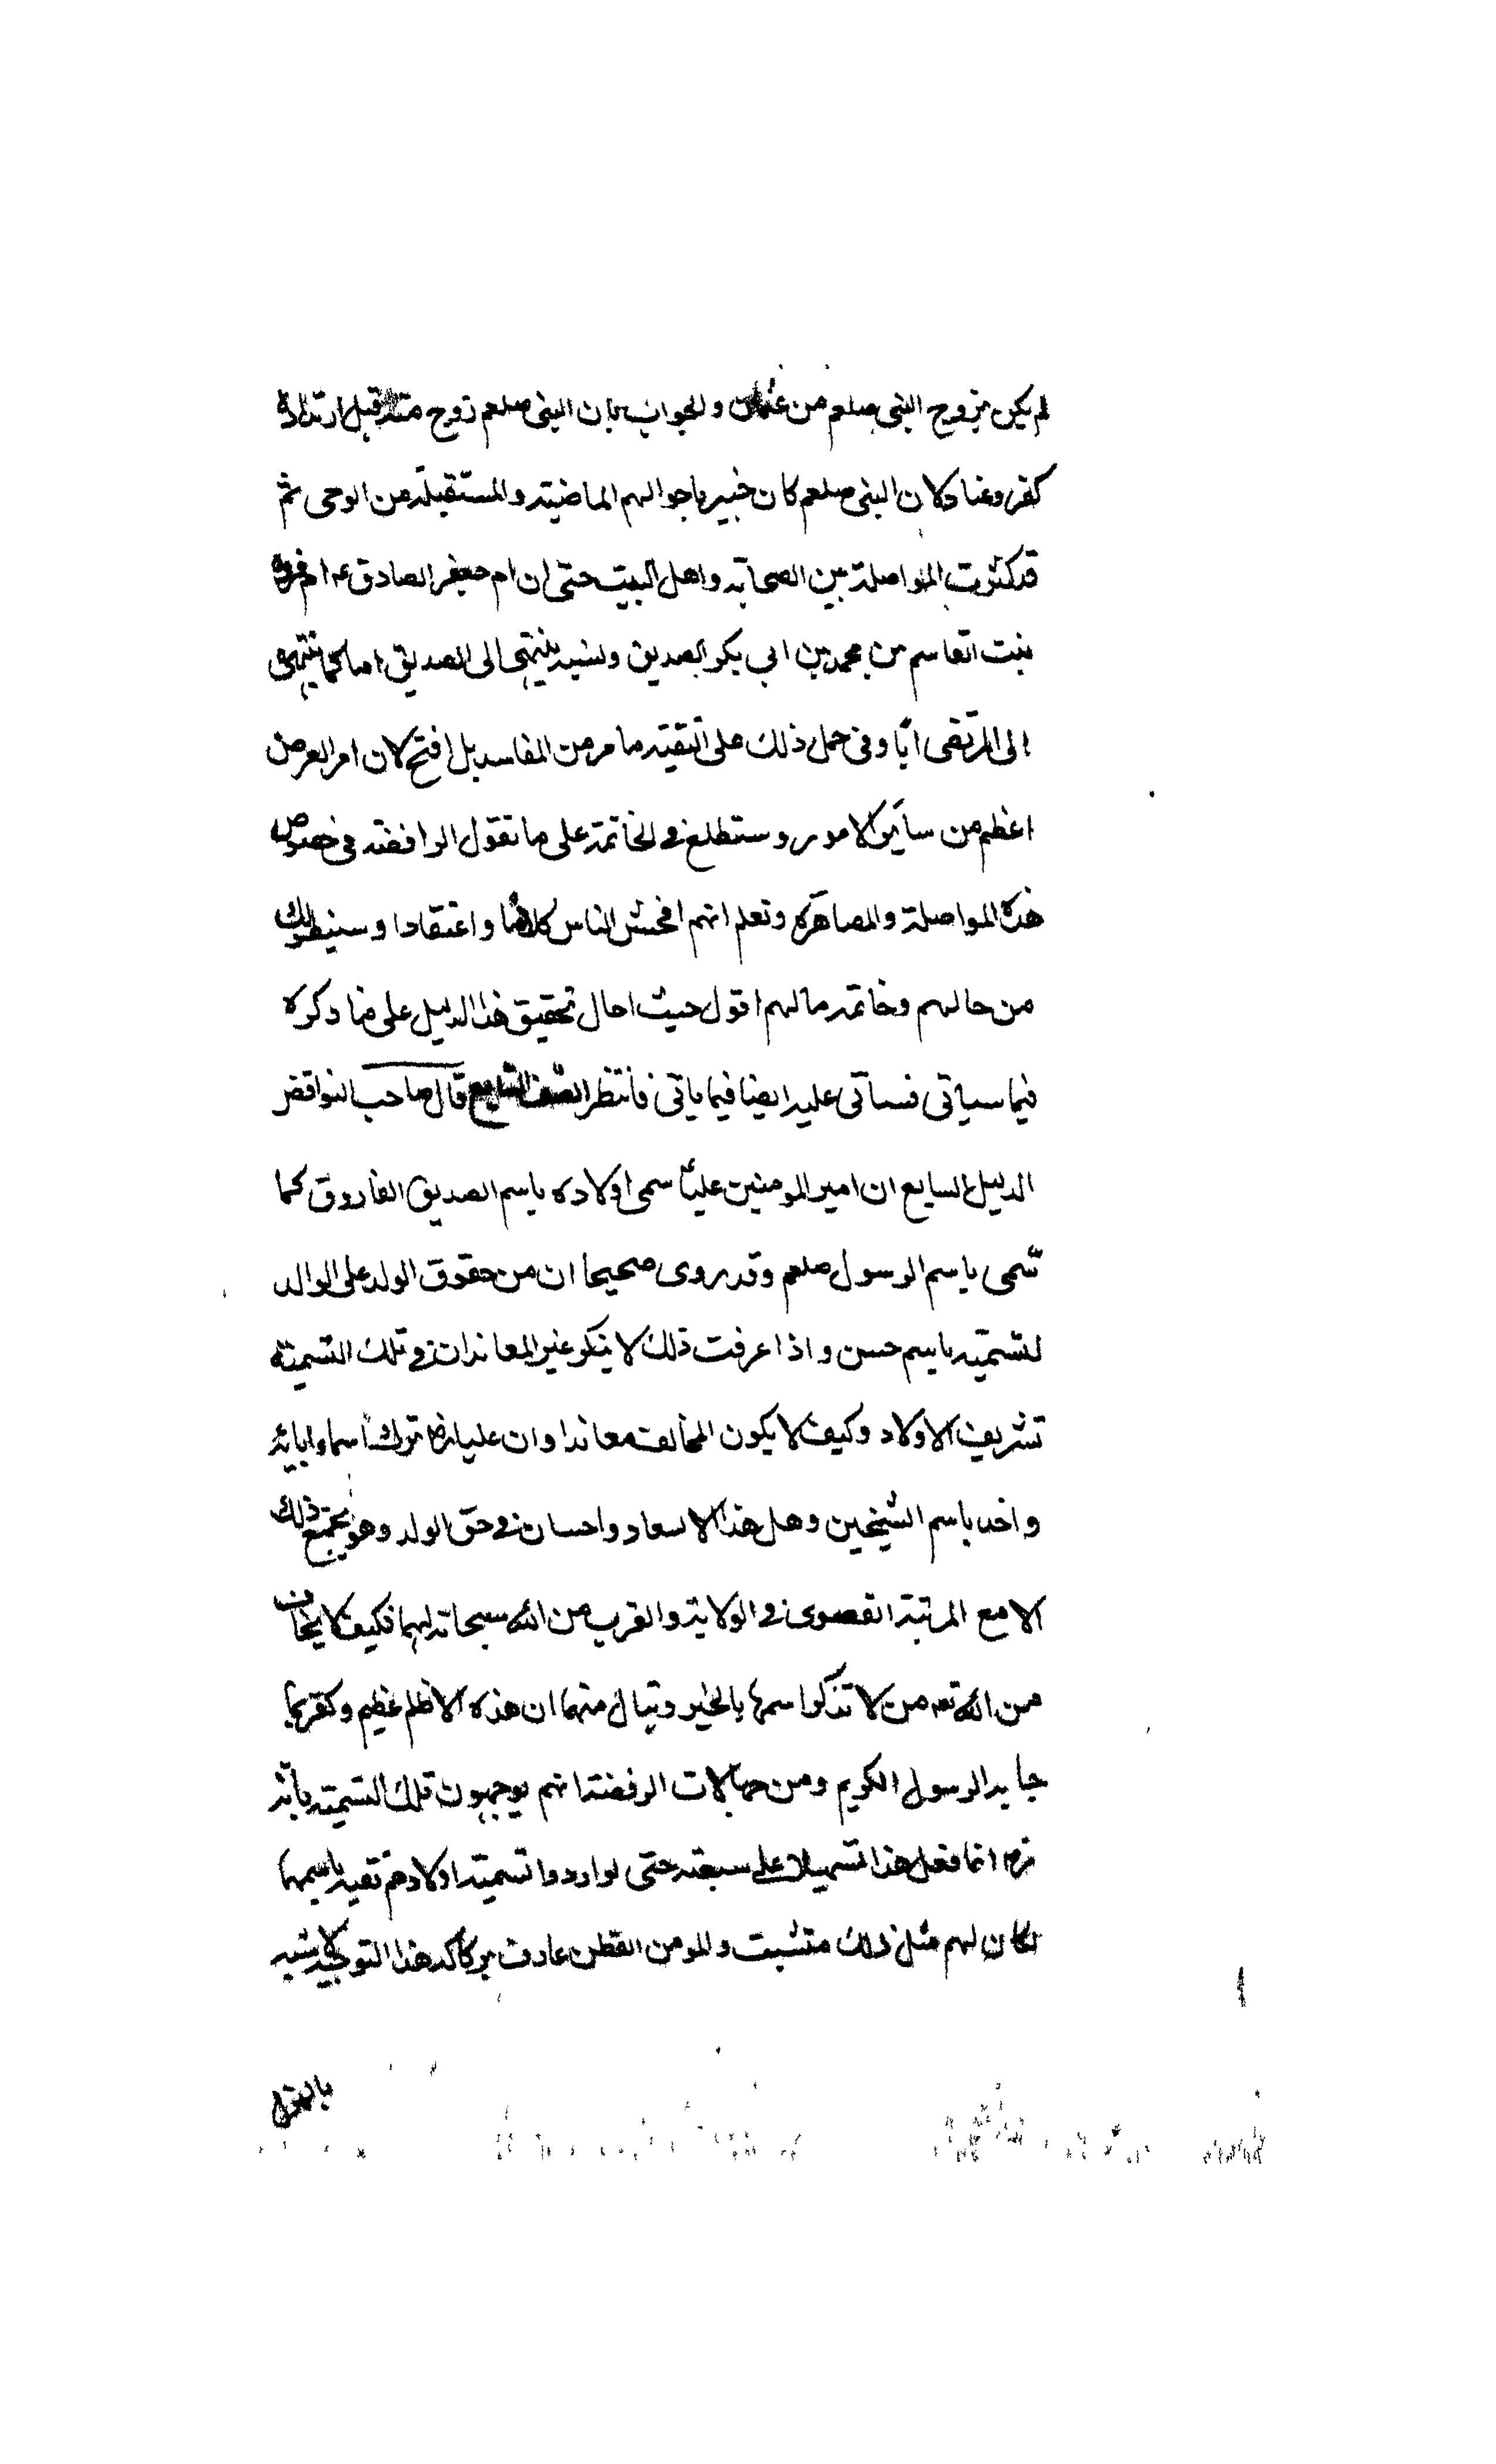 لم يكن يزوج النبى صلعم من عثمان والجواب بان النبى صلعم زوج منه قبل ارتداده
كفر وعناد لان النبى صلعم كان خبير باحوالهم الماضية والمستقبلة من الوحى ثم
قد كثرت المواصلة بين الصحابة واهل البيت حتى ان ام جعفر الصادق ع ام فروه
بنت القاسم من محمد بن ابى بكر الصديق ونسبه ينتهى الى الصديق اما كما ينتهى
الى المرتضى ابا وفى حمل ذلك على التقية ما مر من المفاسد بل افتح لان امر العرض
اعظم من سائر الامور وستطلع فى الخاتمة على ما تقول الرافضة فى خصوص
هذه المواصلة والمصاهرة وتعلم انهم افحش الناس كلاما واعتقادا وسنيطر لك
من حالهم وخاتمة مالهم اقول حيث احال تحقيق هذا الدليل على ما ذكره
فيما سياتى فسنأتى عليه ايضا فيما ياتى فانتظر قال صاحب النواقض
الدليل السابع ان امير المومنين عليا سمى اولاده باسم الصديق الفاروق كما
سمى باسم الرسول صلعم وقد روى صحيحا ان من حقوق الولد على الوالد
تسميته باسم حسن واذا عرفت ذلك لا ينكر غير المعاند ان فى تلك التسمية
تشريف الاولاد وكيف لا يكون المخالف معاندا وان عليا رض ترك اسماء ابائه
واخذ باسم الشيخين وهل هذا الا اسعاد واحسان فى حق الولد وهو يجتمع ذلك
الا مع المرتبة القصوى فى الولاية والقرب من الله سبحانه لهما فكيف لا يخاف
من الله تعه من لا تذكر اسمها بالخير وينال منهما ان هذه الا ظلم عظيم وكفر بما
جا به الرسول الكريم ومن جهالات الرفضة انهم يوجهون تلك التسمية بانه
رض انما فعل هذا تسهيلا على شيعته حتى لو اردوا تسمية اولادهم تقية باسمهما
لكان لهم مثل ذلك متشبت والمومن الفطن عارف بركاكه هذا التوجيه لا شبه